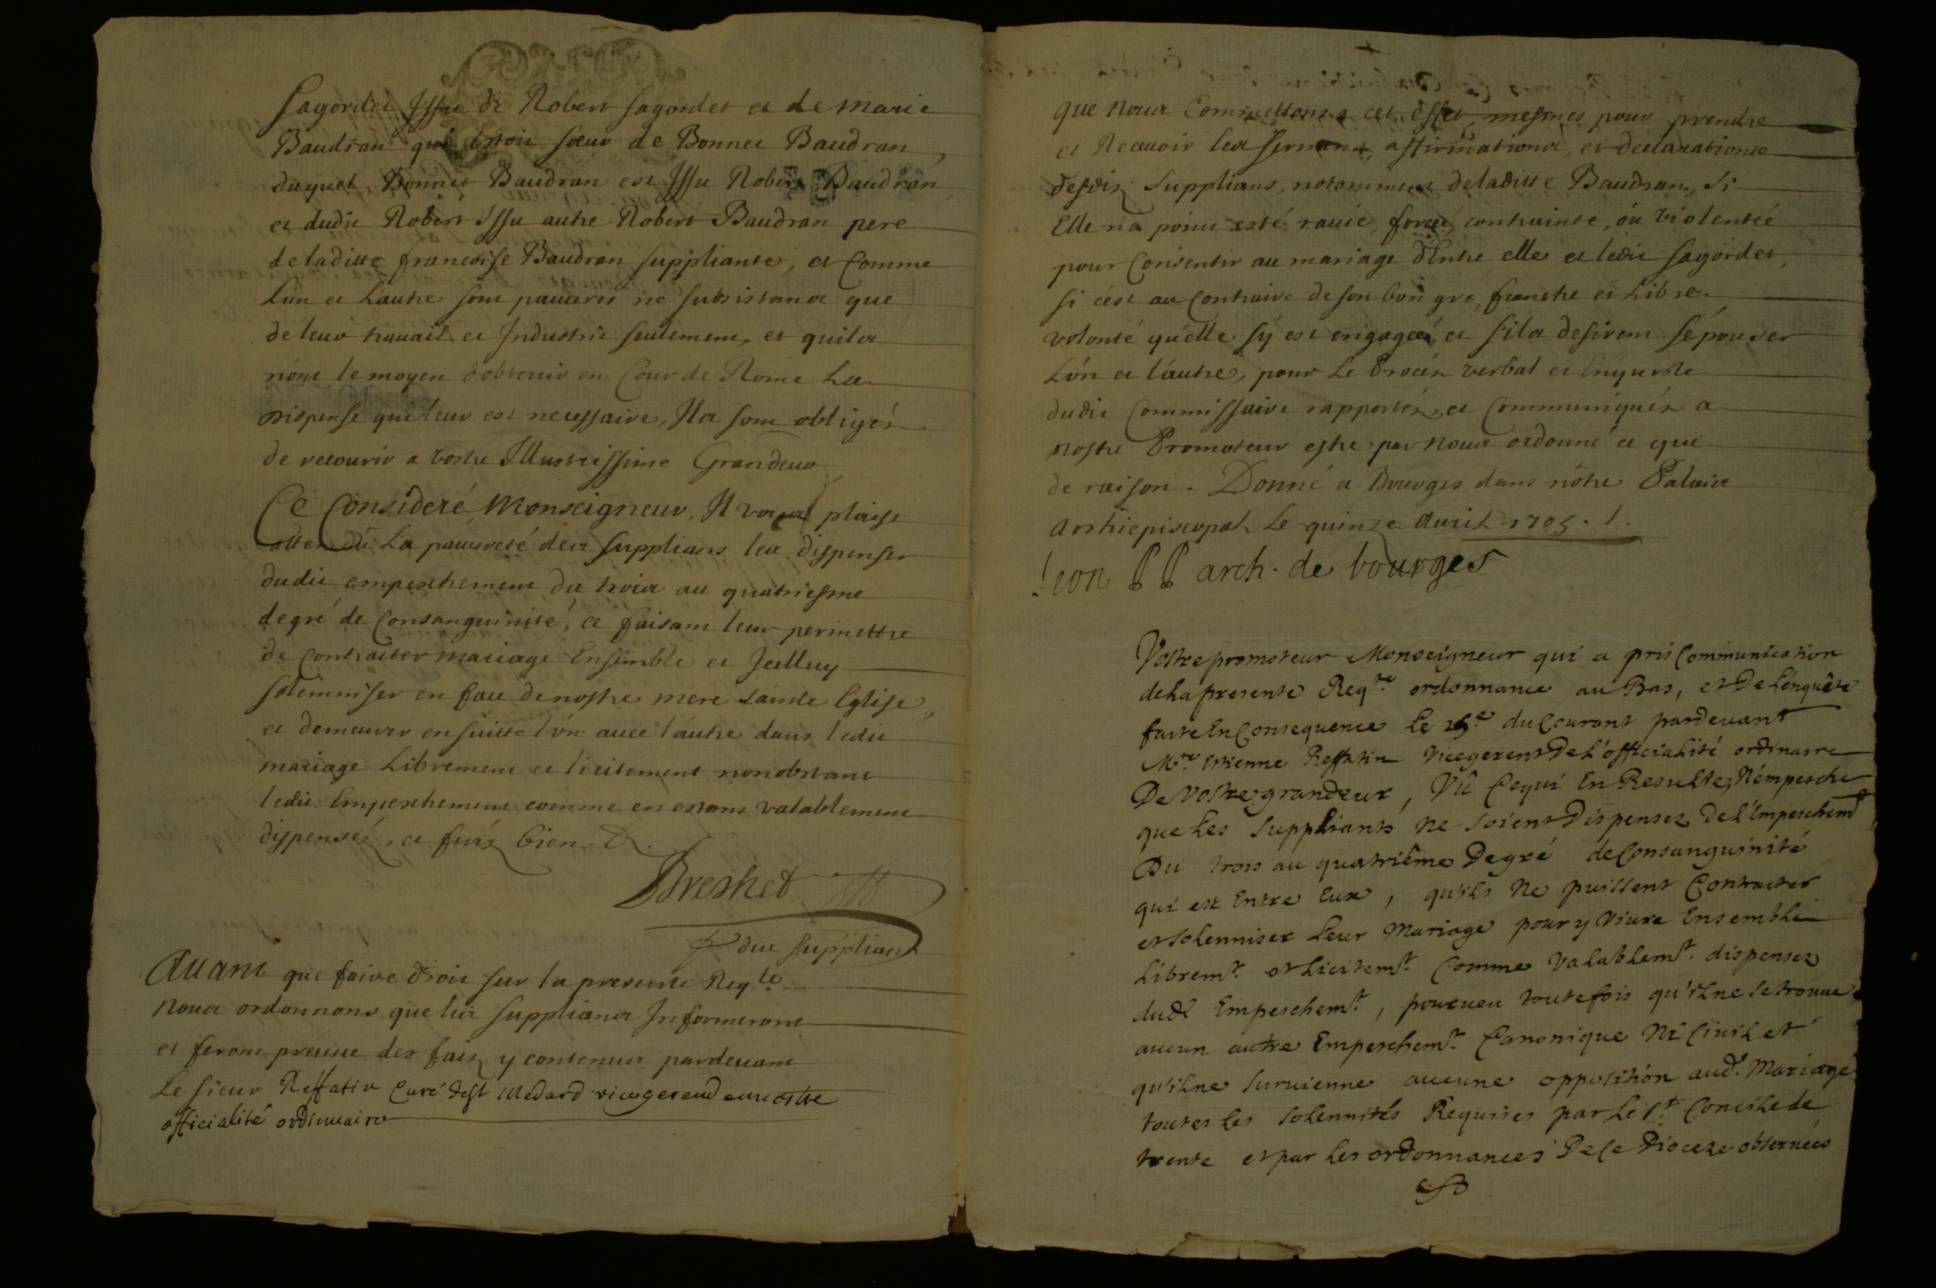 Sagordet Issu de Robert Sagordet et de Marie
Baudran qui Estoit sœur de Bonnet Baudran,
duquel Bonnet Baudran est Issu Robert Baudran
et dudit Robert Issu autre Robert Baudran pere
de laditte francoise Baudran suppliante, et Comme
L'un et L'autre sont pauures ne subsistans que
de leur trauail et Industrie seulement, et quils
n'ont le moyen d'obtenir en Cour de Rome La
dispense qui leur est necessaire, Ils sont obligés
de recourir a vostre Illustrissime Grandeur
Ce Consideré Monseigneur, Il vous plaise
attendu La pauureté des supplians les dispenser
dudit empeschement du trois au quatriesme
degré de Consanguinité, ce faisant leur permettre
de Contracter mariage Ensemble et Icelluy
solemniser en face de nostre mere sainte Eglise,
et demeurer ensuitte l'vn auec l'autre dans ledit
mariage Librement et licitement nonobstant
ledit Empeschement comme en estans valablement
dispensés, et ferés bien &.
Breshet
dud suppliant
Auant que faire droit sur la presente Reqte
Nous ordonnons que les supplians Informeront
et feront preuue des faits y contenus pardeuant
Le sieur Reffatin Curé de St Medard vicegerend en nostre
officialité ordinnaire
que nous Commettons a cet effet, mesmes pour prendre
et Receuoir les serment, affirmations, et declarations
desdits supplians, notamment de laditte Baudran, si
Elle n'a point esté rauie, forcée, contrainte, ou violentée
pour Consentir au mariage d'Entre elle et ledit Sagordet,
si c'est au Contraire de son bon gré, franche et Libre
volonté qu'elle s'y est engagée, et s'ils desirent s'épouser
L'vn et l'autre, pour Le Procés verbal et Enqueste
dudit Commissaire rapportés et Communiqués a
nostre Promoteur estre par Nous ordonné ce que
de raison. Donné a Bourges dans nôtre Palais
Archiepiscopal Le quinze auril 1705.
Leon PP arch. de bourges
Vostre promoteur Monseigneur qui a pris Communication
de La presente Reqte ordonnance au Bas, et De L'enquête
faite En Consequence Le du Courant pardeuant
Mre Estienne Reffatin vicegerent De L'officialité ordinaire
De Vostre grandeur, Vû Cequi En Resulte, N'empesche
que Les suppliants Ne soient Dispensez De L'Empeschemt
Du trois au quatriême Degré de Consanguinité
qui est Entre Eux, qu'ils Ne puissent Contracter
et solenniser Leur Mariage pour y viure Ensemble
Libremt et Licitemt Comme Valablemt dispensez
dud Empeschemt, pourueu toutefois qu'il ne se trouue
aucun autre Empeschemt Canonique Ni Ciuil et
qu'il ne suruienne aucune opposition aud Mariage
toutes les solennités Requises par Le St Concile de
trente et par Les ordonnances De Ce Dioceze obseruées